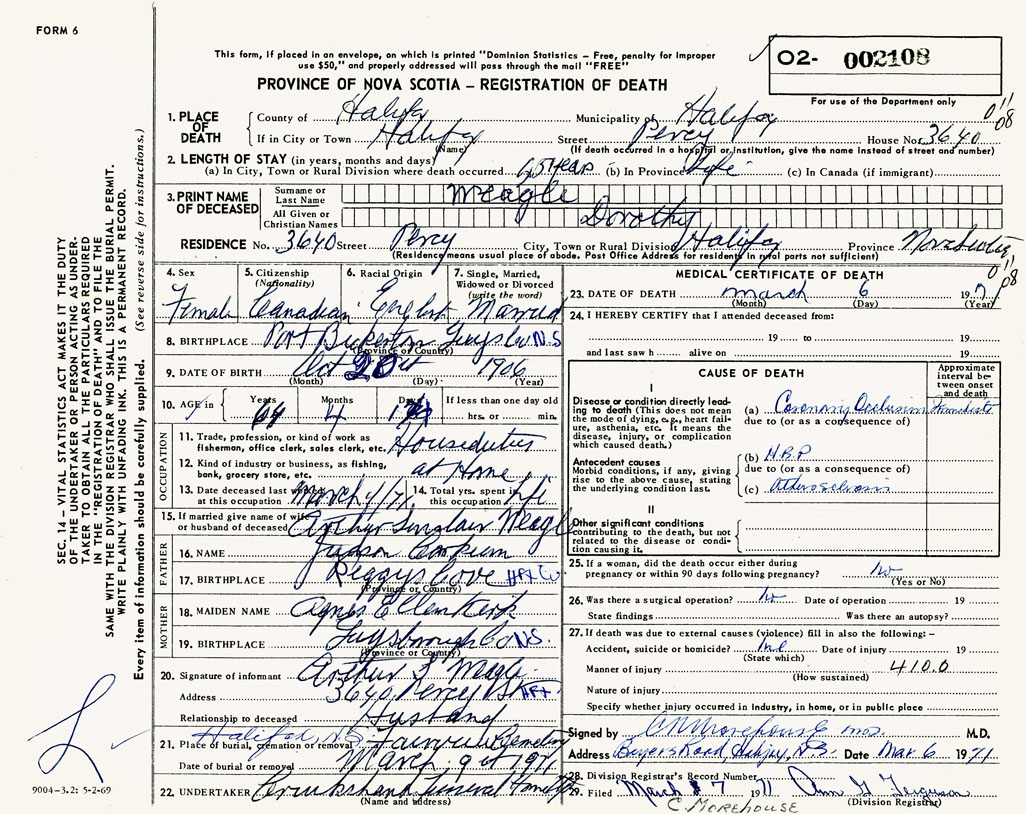 FORM 6
This form, if placed in an envelope, on which is printed "Dominion Statistics – Free, penalty for improper
use $50," and properly addressed will pass through the mail "FREE"
O2- 002108
For use of the Department only
PROVINCE OF NOVA SCOTIA – REGISTRATION OF DEATH
1. PLACE OF DEATH
County of Halifax Municipality of Halifax
If in City or Town Halifax Street Percy House No. 3640
(Name) (If death occurred in a hospital or institution, give the name instead of street and number)
2. LENGTH OF STAY (in years, months and days)
(a) In City, Town or Rural Division where death occurred 65 years (b) In Province Life (c) In Canada (if immigrant)
3. PRINT NAME OF DECEASED
Surname or Last Name Meagle
All Given or Christian Names Dorothy
RESIDENCE No. 3640 Street Percy City, Town or Rural Division Halifax Province Nova Scotia
(Residence means usual place of abode. Post Office Address for residents in rural parts not sufficient)
4. Sex Female
5. Citizenship (Nationality) Canadian
6. Racial Origin English
7. Single, Married, Widowed or Divorced (write the word) Married
8. BIRTHPLACE Port Bickerton Guys Co. N.S
(Province or Country)
9. DATE OF BIRTH Oct 20 1906
(Month) (Day) (Year)
10. AGE in Years 64 Months 4 Days If less than one day old hrs. or min.
OCCUPATION
11. Trade, profession, or kind of work as fisherman, office clerk, sales clerk, etc. Houseduties
12. Kind of industry or business, as fishing, bank, grocery store, etc. at Home
13. Date deceased last worked at this occupation March 14. Total yrs. spent in this occupation Life
15. If married give name of wife or husband of deceased Arthur Sinclair Meagle
FATHER
16. NAME Judson
17. BIRTHPLACE Peggys Cove HFX Co.
(Province or Country)
MOTHER
18. MAIDEN NAME Agnes E
19. BIRTHPLACE Guysborough Co N.S.
(Province or Country)
20. Signature of informant Arthur S Meagle
Address 3640 Percy St HFX
Relationship to deceased Husband
Halifax, N.S.
21. Place of burial, cremation or removal Fairview Cemetery
Date of burial or removal March 9 1971
22. UNDERTAKER Cruikshank Funeral
(Name and address)
MEDICAL CERTIFICATE OF DEATH
23. DATE OF DEATH March 6 197
(Month) (Day) (Year)
24. I HEREBY CERTIFY that I attended deceased from:
19 to
19
and last saw h alive on 19
CAUSE OF DEATH
Approximate interval between onset and death
I
Disease or condition directly leading to death (This does not mean the mode of dying, e.g., heart failure, asthenia, etc. It means the disease, injury, or complication which caused death.)
(a) Coronary Occlusion Immediate
due to (or as a consequence of)
Antecedent causes
Morbid conditions, if any, giving rise to the above cause, stating the underlying condition last.
(b) H.B.P
due to (or as a consequence of)
(c)
II
Other significant conditions contributing to the death, but not related to the disease or condition causing it.
25. If a woman, did the death occur either during pregnancy or within 90 days following pregnancy? No
(Yes or No)
26. Was there a surgical operation? No Date of operation 19
State findings Was there an autopsy?
27. If death was due to external causes (violence) fill in also the following:–
Accident, suicide or homicide? Date of injury 19
(State which)
Manner of injury 4100
(How sustained)
Nature of injury
Specify whether injury occurred in industry, in home, or in public place
Signed by C Morehouse M.D. M.D.
Address Bayers Road, Halifax, N.S. Date Mar. 6 1971
28. Division Registrar's Record Number
29. Filed March 7 1971 Ann G Ferguson
(Division Registrar)
C. MOREHOUSE
SEC. 14–VITAL STATISTICS ACT MAKES IT THE DUTY
OF THE UNDERTAKER OR PERSON ACTING AS UNDERTAKER TO OBTAIN ALL THE PARTICULARS REQUIRED
IN THE "REGISTRATION OF DEATH" AND TO FILE THE
SAME WITH THE DIVISION REGISTRAR WHO SHALL ISSUE THE BURIAL PERMIT.
WRITE PLAINLY WITH UNFADING INK. THIS IS A PERMANENT RECORD.
Every item of information should be carefully supplied. (See reverse side for instructions.)
9004-3.2: 5-2-69